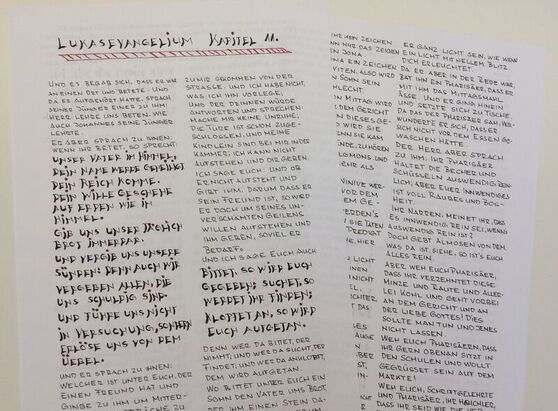 LUKASEVANGELIUM KAPITEL 11.
UND ES BEGAB SICH, DASS ER WAR
AN EINEM ORT UND BETETE. UND
DA ER AUFGEHÖRT HATTE, SPRACH
SEINER JÜNGER EINER ZU IHM:
HERR LEHRE UNS BETEN, WIE
AUCH JOHANNES SEINE JÜNGER
LEHRTE.
ER ABER SPRACH ZU IHNEN:
WENN IHR BETET, SO SPRECHT:
UNSER VATER IM HIMMEL,
DEIN NAME WERDE GEHEILIGT
DEIN REICH KOMME.
DEIN WILLE GESCHEHE
AUF ERDEN WIE IM
HIMMEL.
GIB UNS UNSER TÄGLICH
BROT IMMERDAR.
UND VERGIB UNS UNSERE
SÜNDEN: DENN AUCH WIR
VERGEBEN ALLEN, DIE
UNS SCHULDIG SIND.
UND FÜHRE UNS NICHT
IN VERSUCHUNG, SONDERN
ERLÖSE UNS VON DEM
UEBEL.
UND ER SPRACH ZU IHNEN:
WELCHER IST UNTER EUCH, DER
EINEN FREUND HAT UND
GINGE ZU IHM UM MITTER-
ZU MIR GEKOMMEN VON DER
STRASSE. UND ICH HABE NICHT,
WAS ICH IHM VORLEGE;
UND DER DRINNEN WÜRDE
ANTWORTEN UND SPRECHEN:
MACHE MIR KEINE UNRUHE;
DIE TÜRE IST SCHON ZUGE-
SCHLOSSEN UND MEINE
KINDLEIN SIND BEI MIR IN DER
KAMMER; ICH KANN NICHT
AUFSTEHEN UND DIR GEBEN.
ICH SAGE EUCH: UND OB
ER NICHT AUFSTEHT UND
GIBT IHM, DARUM DASS ER
SEIN FREUND IST, SO WIRD
ER DOCH UM SEINES UN-
VERSCHÄMTEN GEILENS
WILLEN AUFSTEHEN UND
IHM GEBEN, SOVIEL ER
BEDARF.
UND ICH SAGE EUCH AUCH
BITTET, SO WIRD EUCH
GEGEBEN; SUCHET, SO
WERDET IHR FINDEN;
KLOPFET AN, SO WIRD
EUCH AUFGETAN.
DENN WER DA BITTET, DER
NIMMT; UND WER DA SUCHT, DER
FINDET; UND WER DA ANKLOPFT,
DEM WIRD AUFGETAN.
WO BITTET UNTER EUCH EIN
SOHN DEN VATER UMS BROT,
DER IHM EINEN STEIN DA-
IHR KEIN ZEICHEN
NUR DAS ZEICHEN
JONA.
NA EIN ZEICHEN
VITEN, ALSO WIRD
N SOHN SEIN
HLECHT.
N MITTAG WIRD
DEM GERICHT
N DIESES GE-
D WIRD SIE
NN SIE KAM
ENDE, ZU HÖREN
LOMONS, UND
EHR ALS
NINIVE WER-
VOR DEM
EM GE-
ERDEN'S
SIE TATEN
PREDIGT
E, HIER
LICHT
ER GANZ LICHT SEIN, WIE WENN
EIN LICHT MIT HELLEM BLITZ
DICH ERLEUCHTET.
DA ER ABER IN DER REDE WAR,
BAT IHN EIN PHARISÄER, DASS ER
MIT IHM DAS MITTAGSMAHL
ÄSSE. UND ER GING HINEIN
UND SETZTE SICH ZU TISCHE.
DA DAS DER PHARISÄER SAH, VER-
WUNDERTE ER SICH, DASS ER
SICH NICHT VOR DEM ESSEN GE-
WASCHEN HÄTTE.
DER HERR ABER SPRACH
ZU IHM: IHR PHARISÄER
HALTET DIE BECHER UND
SCHÜSSELN AUSWENDIG REIN-
LICH; ABER EUER INWENDIGES
IST VOLL RAUBES UND BOS-
HEIT.
IHR NARREN, MEINET IHR, DASS
ES INWENDIG REIN SEI, WENN'S
AUSWENDIG REIN IST?
DOCH GEBT ALMOSEN VON DEM,
WAS DA IST, SIEHE, SO IST'S EUCH
ALLES REIN.
ABER WEH EUCH PHARISÄER,
DASS IHR VERZEHNTET DIE
MINZE UND RAUTE UND ALLER-
LEI KOHL UND GEHT VORBEI
AN DEM GERICHT UND AN
DER LIEBE GOTTES! DIES
SOLLTE MAN TUN UND JENES
NICHT LASSEN.
WEH EUCH PHARISÄERN, DASS
IHR GERN OBENAN SITZT IN
DEN SCHULEN UND WOLLT
GEGRÜSSET SEIN AUF DEM
MARKTE!
WEH EUCH, SCHRIFTGELEHRTE
UND PHARISÄER, IHR HEUCHLER,
DASS IHR SEID WIE DIE